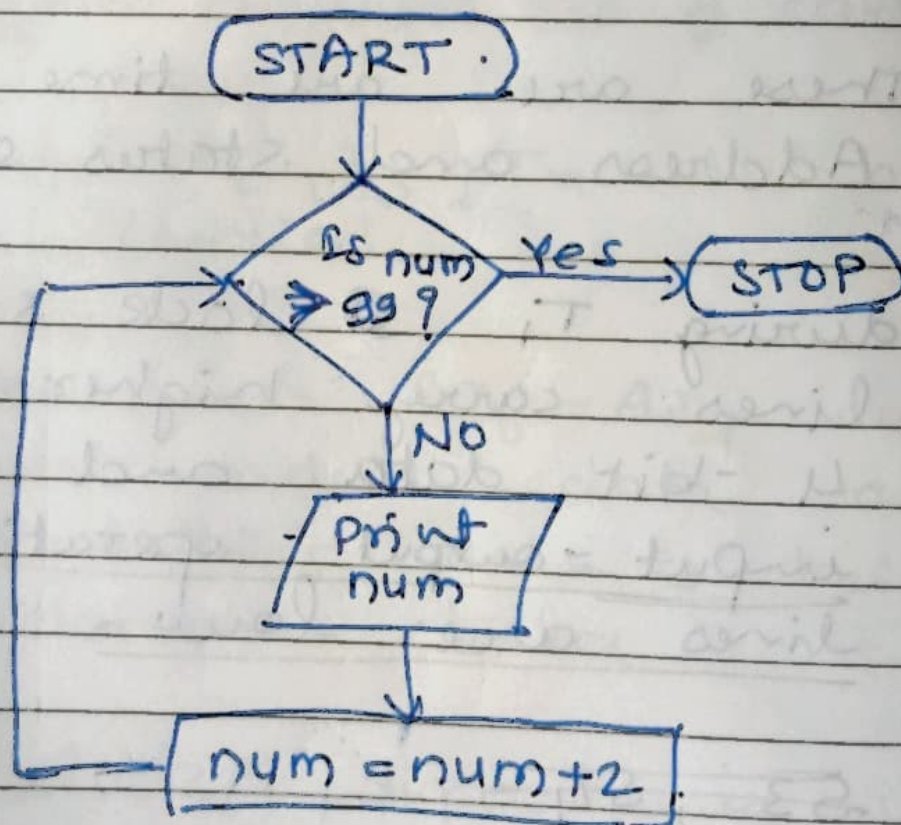 START
Is num
> 99 ?
Yes
STOP
NO
Print
num
num = num + 2